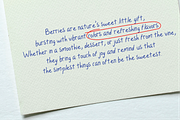 Berries are nature's sweet little gift,
bursting with vibrant colors and refreshing flavors.
Whether in a smoothie, dessert, or just fresh from the vine,
they bring a touch of joy and remind us that
the simplest things can often be the sweetest.